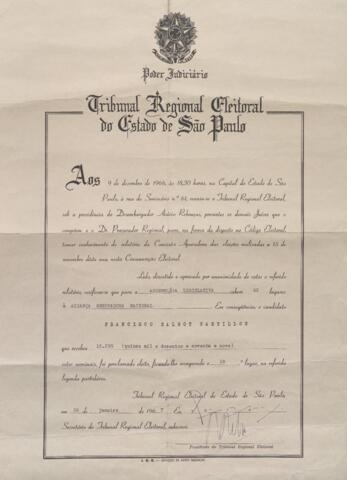 Poder Judiciário
Tribunal Regional Eleitoral
do Estado de São Paulo
Aos 9 de dezembro de 1966, às 18,30 horas, na Capital do Estado de São
Paulo, à rua do Seminário n.º 61, reuniu-se o Tribunal Regional Eleitoral,
sob a presidência do Desembargador presentes os demais Juízes que
o compõem e o Dr. Procurador Regional, para, na forma do disposto no Código Eleitoral,
tomar conhecimento do relatório da Comissão Apuradora das eleições realizadas a 15 de
novembro dêste ano, nesta Circunscrição Eleitoral.
Lido, discutido e aprovado por unanimidade de votos o referido
relatório, verificou-se que para a ASSEMBLÉIA LEGISLATIVA cabem lugares
à ALIANÇA RENOVADORA NACIONAL Em conseqüência, o candidato
FRANCISCO
que recebeu (quinze mil e duzentos e noventa e nove)
votos nominais, foi proclamado eleito, ficando-lhe assegurado o lugar, na referida
legenda partidária.
Tribunal Regional Eleitoral do Estado de São Paulo,
aos de janeiro de 196 7 Eu
Secretário do Tribunal Regional Eleitoral, subscrevi.
Presidente do Tribunal Regional Eleitoral